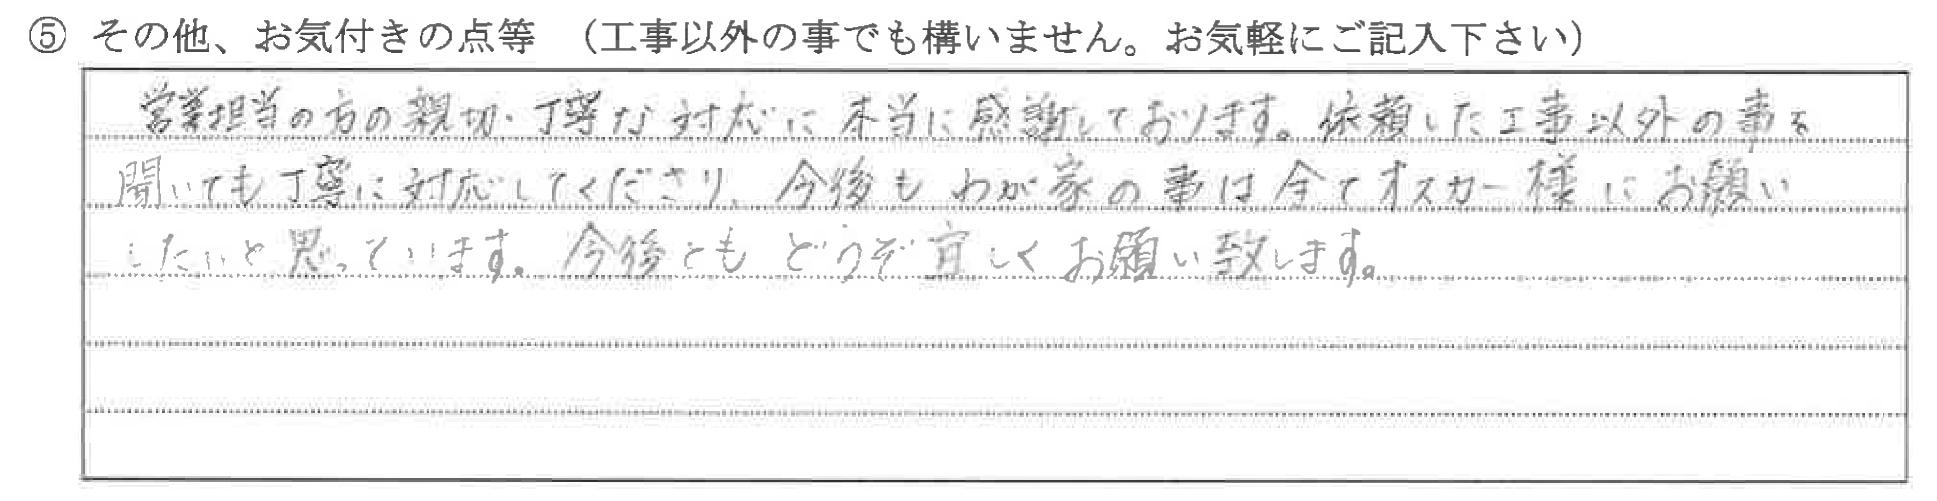 ⑤ その他、お気付きの点等 （工事以外の事でも構いません。お気軽にご記入下さい）
営業担当の方の親切・丁寧な対応に本当に感謝しております。依頼した工事以外の事を
聞いても丁寧に対応してくださり、今後もわが家の事は全てオスカー様にお願い
したいと思っています。今後ともどうぞ宜しくお願い致します。